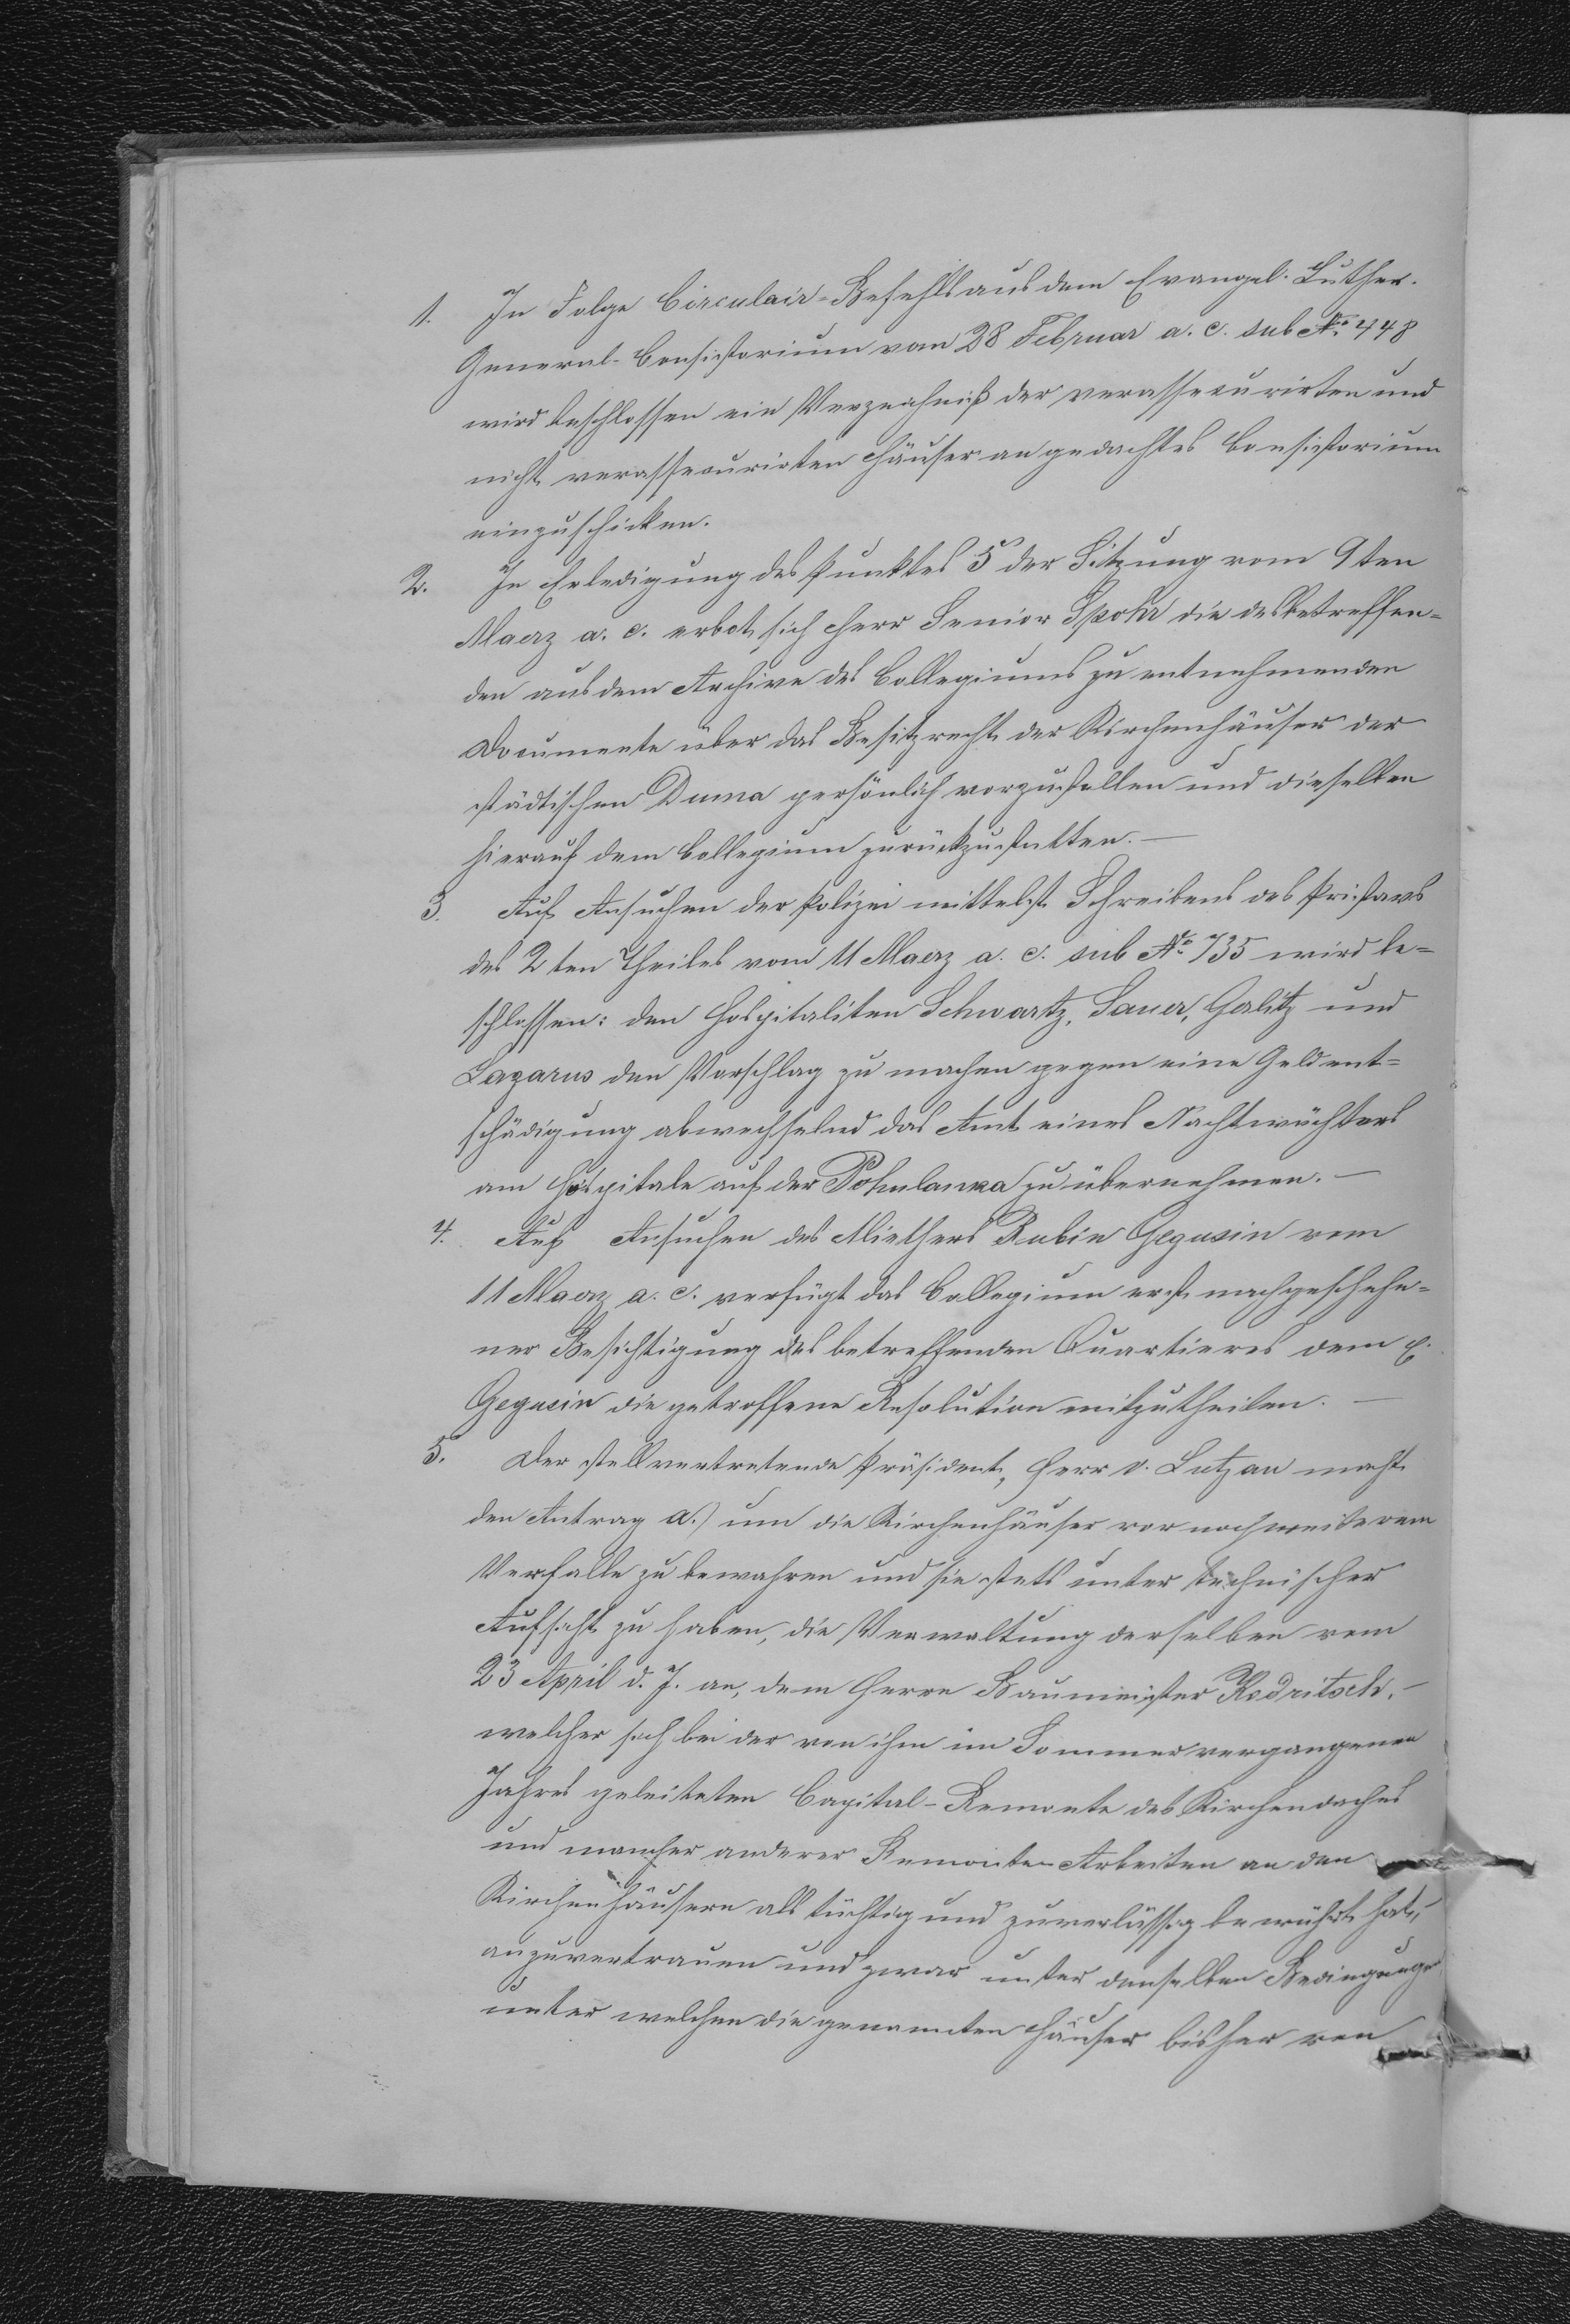 1. In Folge Circulair-Befehls aus dem Evangel. Luther.
General-Consistorium vom 28 Februar a. c. sub No. 448
wird beschlossen ein Verzeichniß der verassecurirten und
nicht verassecurirten Häuser an gedachtes Consistorium
einzuschicken.
2. In Erledigung des Punktes 5 der Sitzung vom 9ten
Maerz a. c. erbot sich Herr Senior Spohr die desbetreffen-
den aus dem Archive des Collegiums zu entnehmenden
Documente über das Besitzrecht der Kirchenhäuser der
städtischen Duma persönlich vorzustellen und dieselben
hierauf dem Collegium zurückzustatten. —
3. Auf Ansuchen der Polizei mittelst Schreibens des Pristavs
des 2ten Theiles vom 11 Maerz a. c. sub No. 735 wird be-
schlossen: den Hospitaliten Schwartz, Sauer, Golitz und
Lazarus den Vorschlag zu machen gegen eine Geldent-
schädigung abwechselnd das Amt eines Nachtwächters
am Hospitale auf der Pohulanka zu übernehmen. —
4. Auf Ansuchen des Miethers Rubin Gegusin vom
11 Maerz a. c. verfügt das Collegium erst nach geschehe-
ner Besichtigung des betreffenden Quartieres dem H.
Gegusin die getroffene Resolution mitzutheilen. —
5. Der stellvertretende Präsident, Herr v. Lutzau macht
den Antrag a.) um die Kirchenhäuser vor noch weiterem
Verfalle zu bewahren und sie stets unter technischer
Aufsicht zu haben, die Verwaltung derselben vom
23 April d. J. an, dem Herrn Baumeister Kodritsch, —
welcher sich bei der von ihm im Sommer vergangenen
Jahres geleiteten Capital-Remonte des Kirchendaches
und mancher anderer Remonten-Arbeiten an den
Kirchenhäusern als tüchtig und zuverlässig bewährt hat,
anzuvertrauen und zwar unter denselben Bedingungen
unter welchen die genannten Häuser bisher von